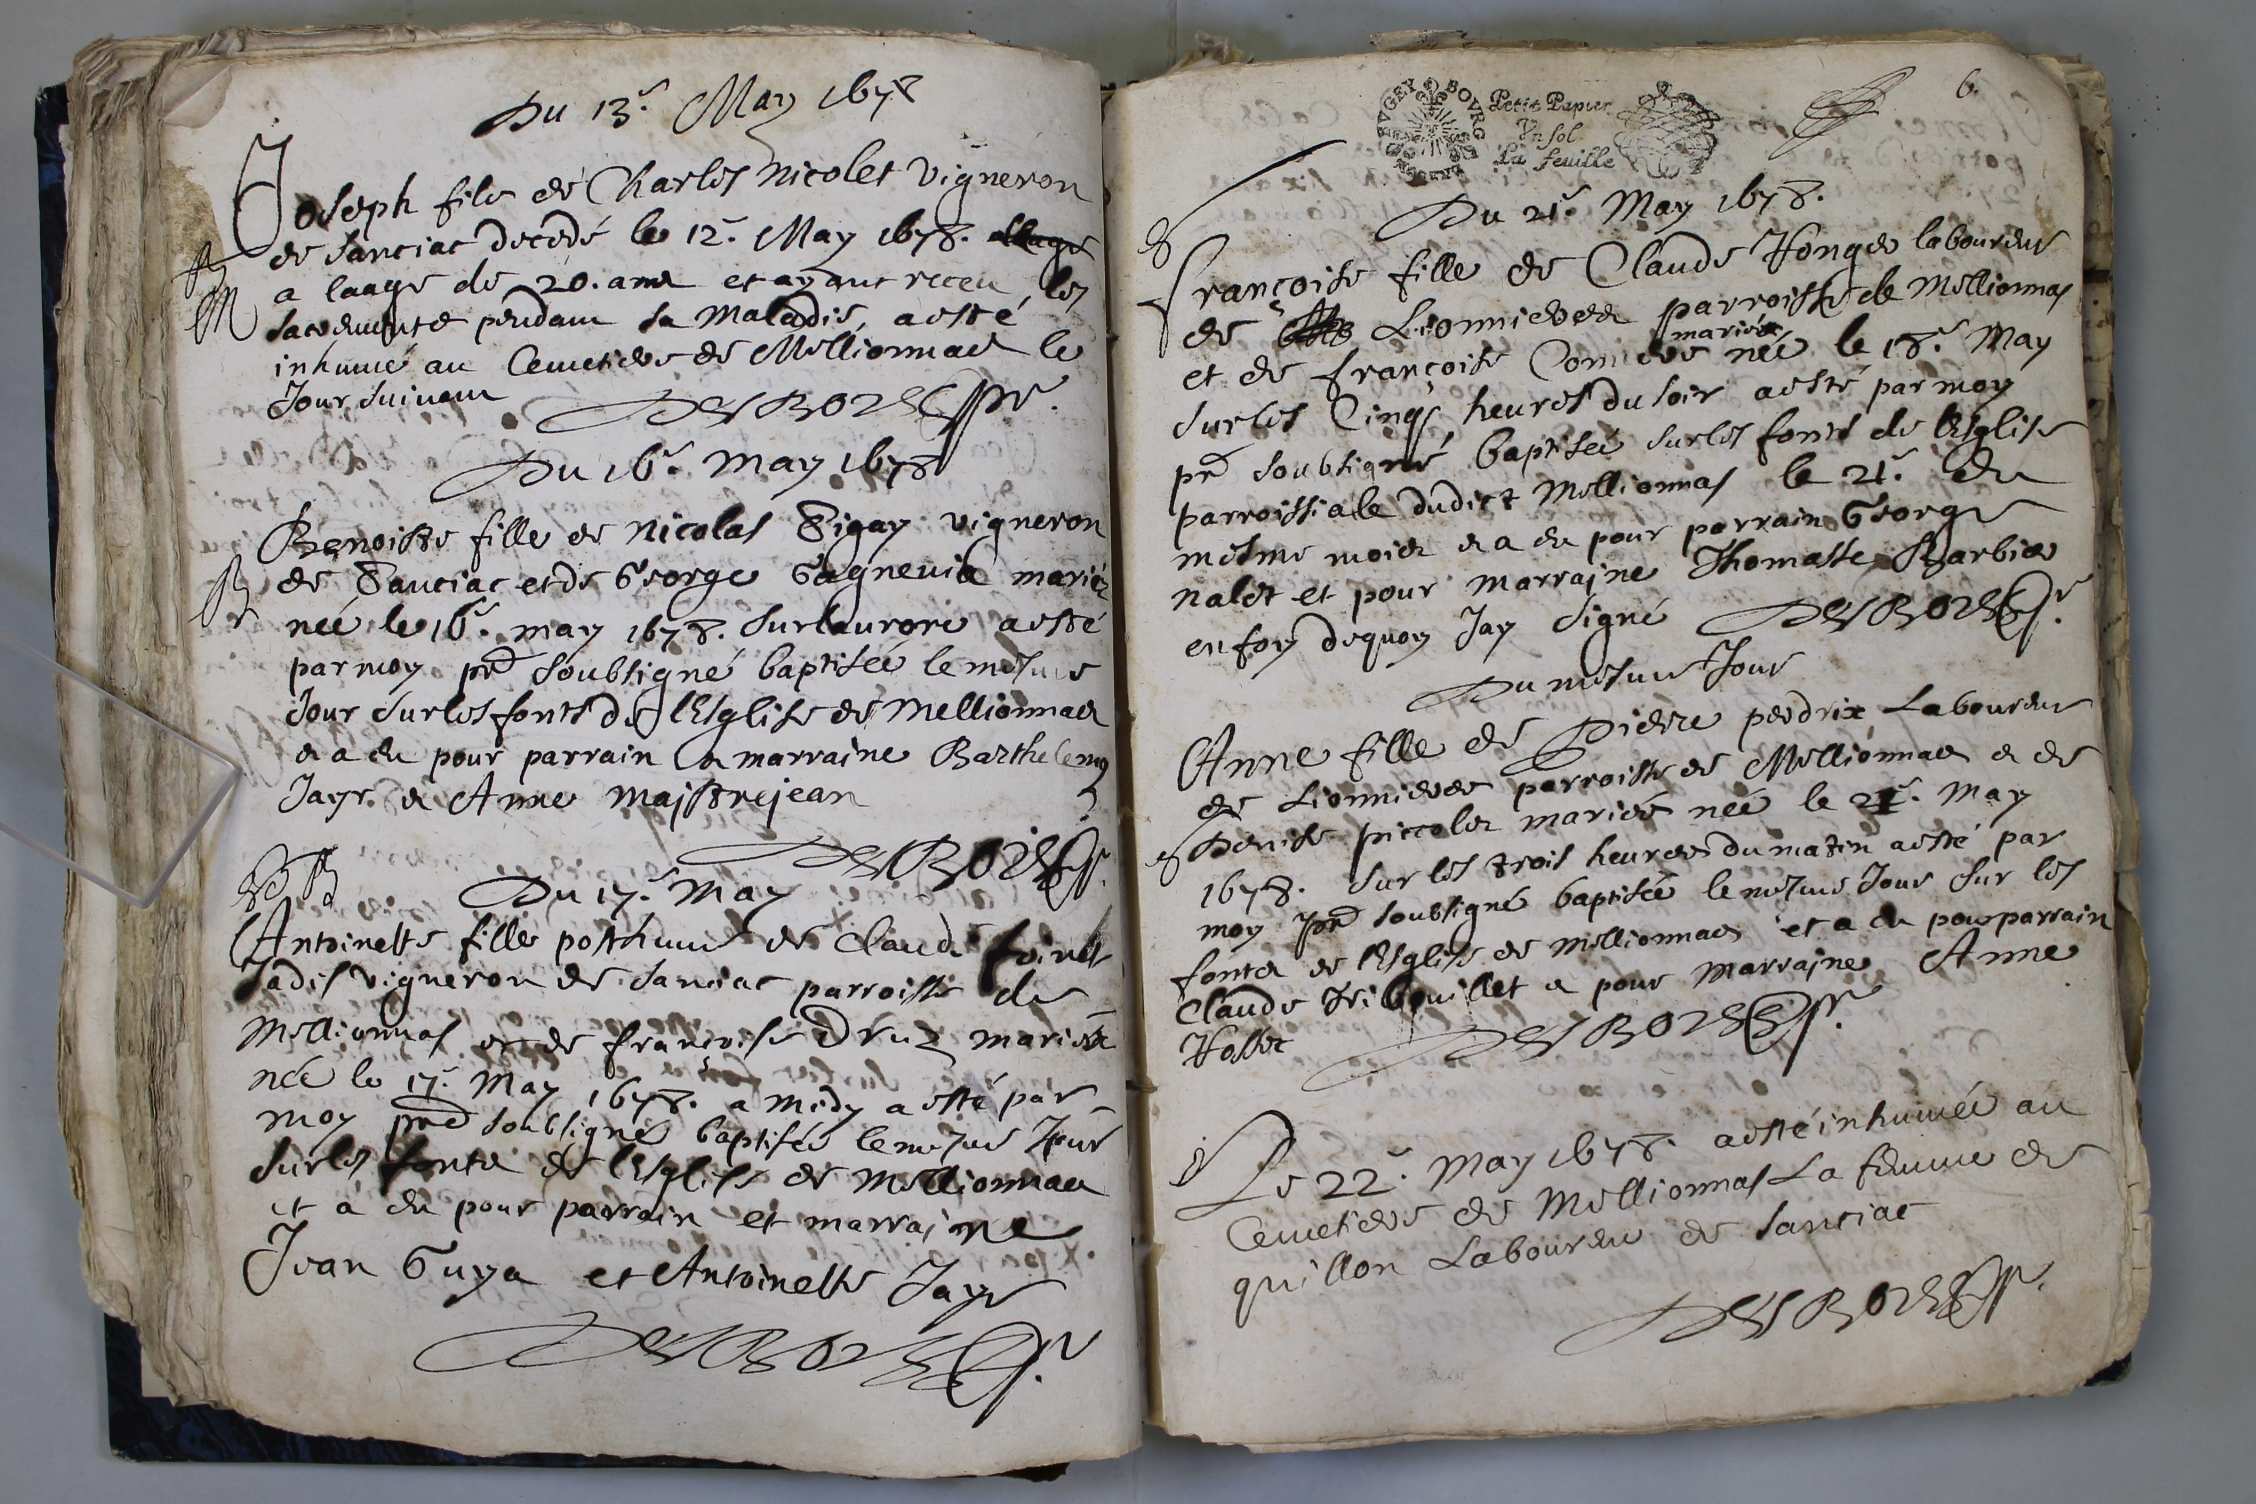 Du 13e. May 1678
Joseph fils de Charles Nicolet Vigneron
de Sanciac decedé le 12e. May 1678.
a laage de 20. ans et ayant receu les
sacrements pendant sa maladie a esté
inhumé au Cemetiere de Mellionnas le
Jour suivant
DesBois ptre.
Du 16e. May 1678
Benoiste fille de Nicolas Pigay vigneron
de Sanciac et de George mariez
née le 16e. may 1678. sur laurore a esté
par moy pre soubsigné baptisée le mesme
Jour sur les fonts de l'Esglise de Mellionnas
et a eu pour parrain et marraine Barthelemy
Jayr et Anne Maistrejean
DesBois
Du 17e. May
Antoinette fille posthume de Claude
Jadis vigneron de Sanciac parroisse de
Mellionnas et de françoise Druz mariez
née le 17e. May 1678. a midy a esté par
moy pre soubsigné baptisée le mesme Jour
sur les fonts de l'Esglise de Mellionnas
et a eu pour parrain et marraine
Jean Guya et Antoinette Jayr
DesBois
6.
BVGEY BOVRG
Petit Papier
Vn sol
La feuille
Du 21e. May 1678.
françoise fille de Claude laboureur
de Lionnieres parroisse de Mellionnas
mariez
et de françoise née le 18e. May
sur les Cinqs heures du soir a esté par moy
pre soubsigné baptisée sur les fonts de l'Esglise
parroissiale dudict Mellionnas le 21e. du
mesme mois et a eu pour parrain George
nalet et pour marraine Thomasse
en foy dequoy Jay signé DesBois
Du mesme Jour
Anne fille de Pierre perdrix Laboureur
de Lionnieres parroisse de Mellionnas et de
Denise piccolet mariez née le 21e. May
1678. sur les trois heures du matin a esté par
moy pre soubsigné baptisée le mesme Jour sur les
fonts de l'Esglise de Mellionnas et a eu pour parrain
Claude et pour marraine Anne
DesBois
Le 22e. May 1678. a esté inhumée au
Cemetiere de Mellionnas La femme de
quillon Laboureur de Sanciac
DesBois